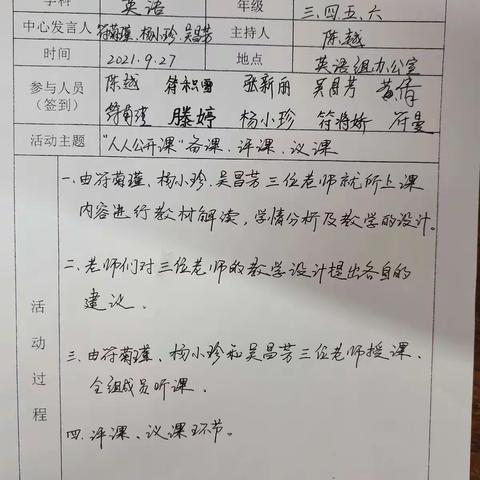 学科 英语 年级 三.四.五.六
中心发言人 符菊瑾、杨小珍、吴昌芳 主持人 陈越
时间 2021.9.27 地点 英语组办公室
参与人员 陈越 符积雷 张新丽 吴昌芳
(签到) 符菊瑾 滕婷 杨小珍 符将娇 符曼
活动主题 "人人公开课"备课、评课、议课
活动过程
一、由符菊瑾、杨小珍、吴昌芳三位老师就所上课
内容进行教材解读,学情分析及教学的设计。
二、老师们对三位老师的教学设计提出各自的
建议.
三、由符菊瑾、杨小珍和吴昌芳三位老师授课、
全组成员听课.
四、评课、议课环节。